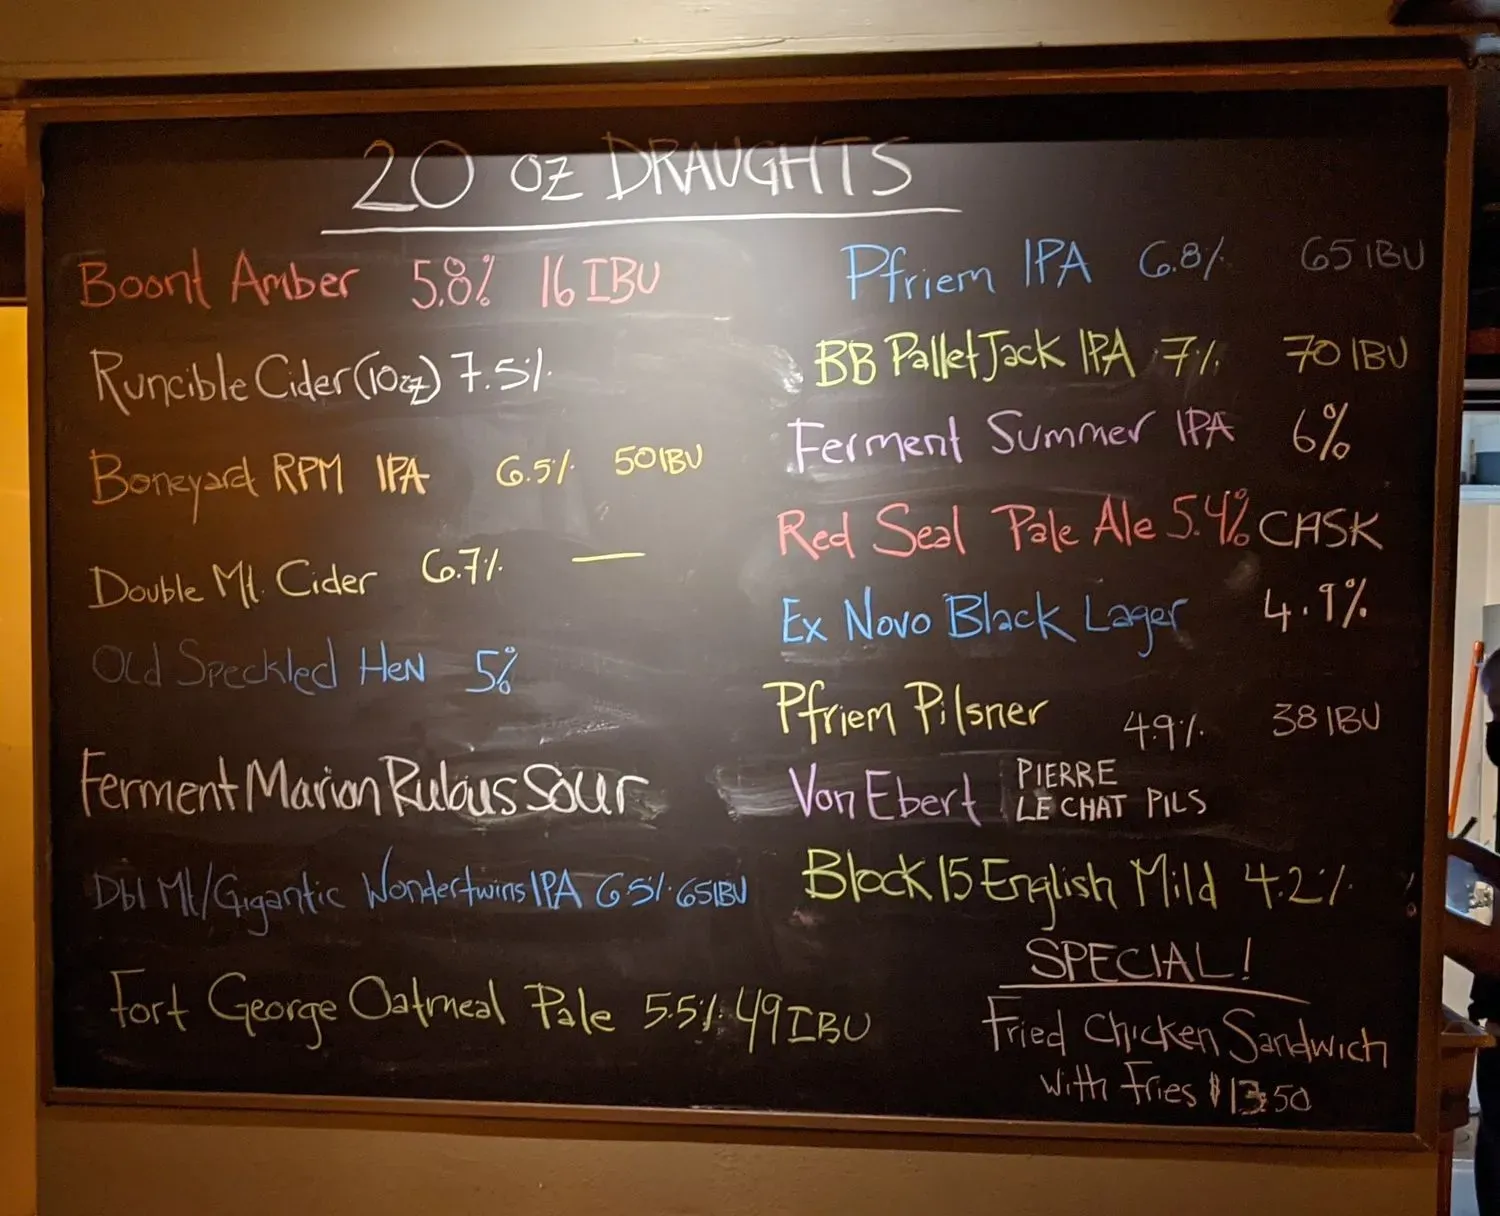 20 oz DRAUGHTS
Boont Amber 5.8% 16 IBU
Runcible Cider (10oz) 7.5%
Boneyard RPM IPA 6.5% 50 IBU
Double Mt. Cider 6.7% —
Old Speckled Hen 5%
Ferment Marion Rubus Sour
Dbl Mt/Gigantic Wondertwins IPA 6.5% 65 IBU
Fort George Oatmeal Pale 5.5% 49 IBU
Pfriem IPA 6.8% 65 IBU
BB Pallet Jack IPA 7% 70 IBU
Ferment Summer IPA 6%
Red Seal Pale Ale 5.4% CASK
Ex Novo Black Lager 4.9%
Pfriem Pilsner 4.9% 38 IBU
Von Ebert PIERRE
LE CHAT PILS
Block 15 English Mild 4.2%
SPECIAL!
Fried Chicken Sandwich
with Fries $13.50